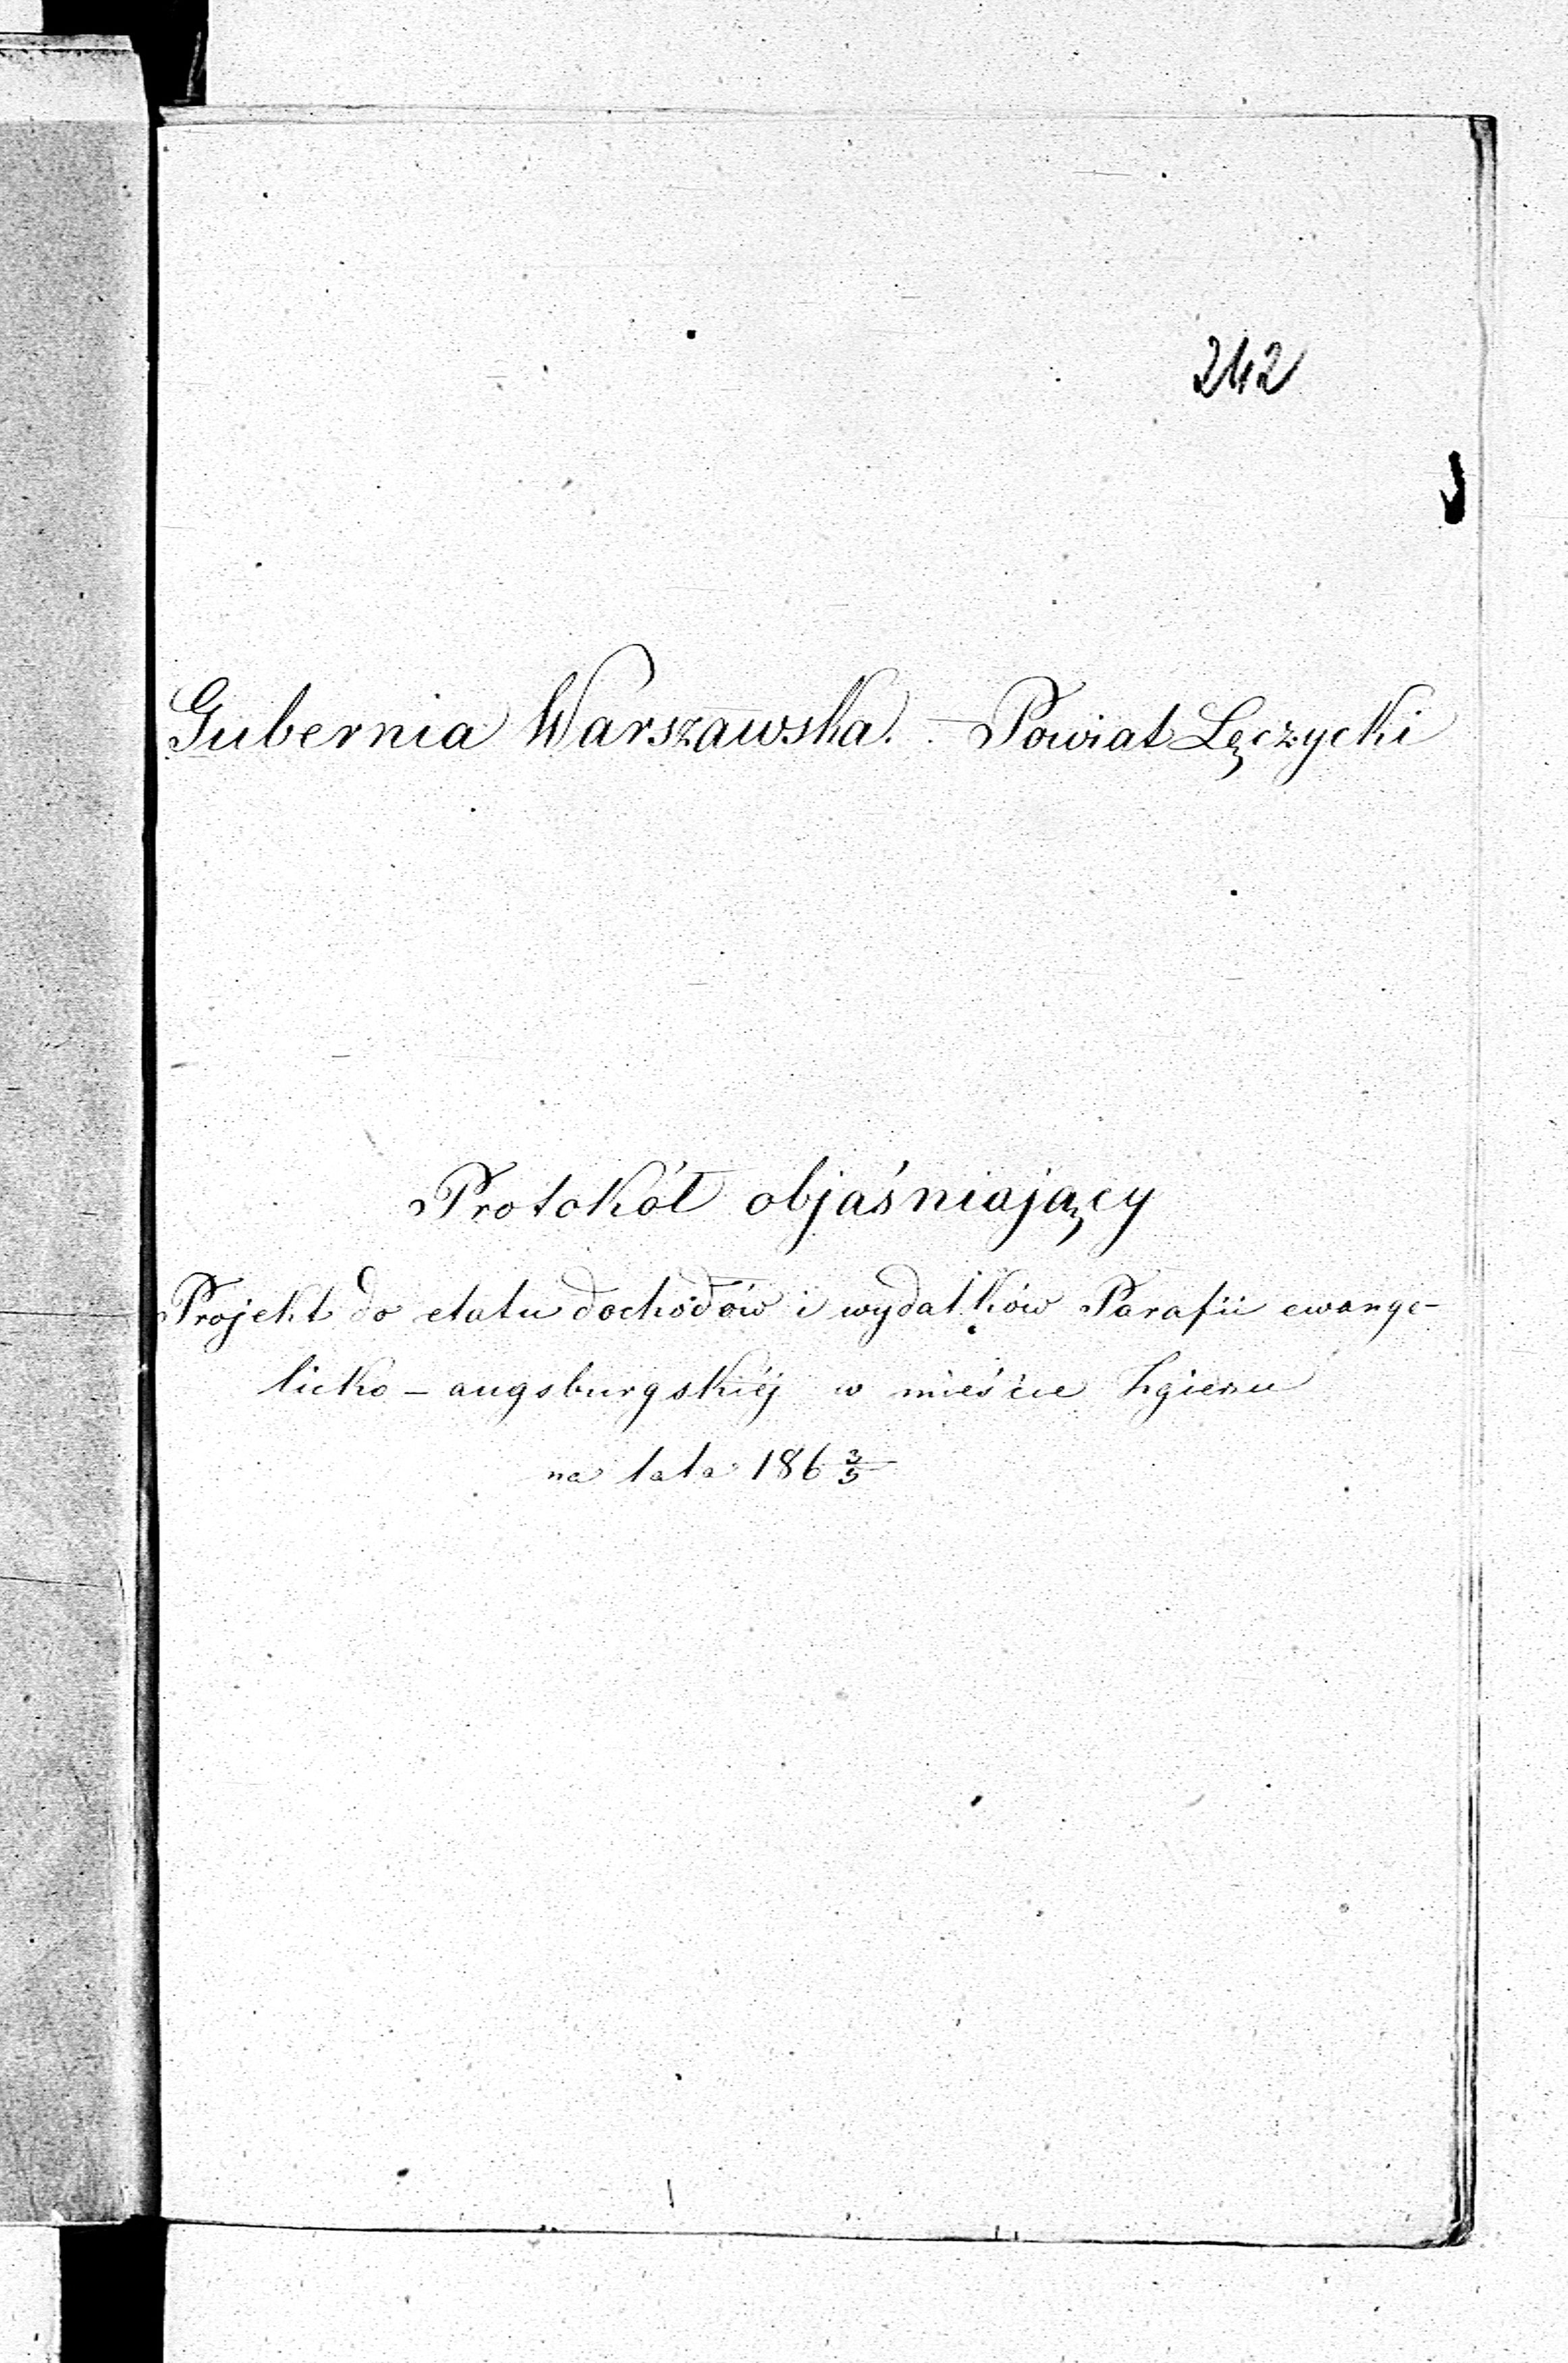 242
Gubernia Warszawska. Powiat Łęczycki
Protokół objaśniający
Projekt do etatu dochodów i wydatków Parafii ewange-
licko - augsburgskiéj w mieście Zgierzu
na lata 186 3/5